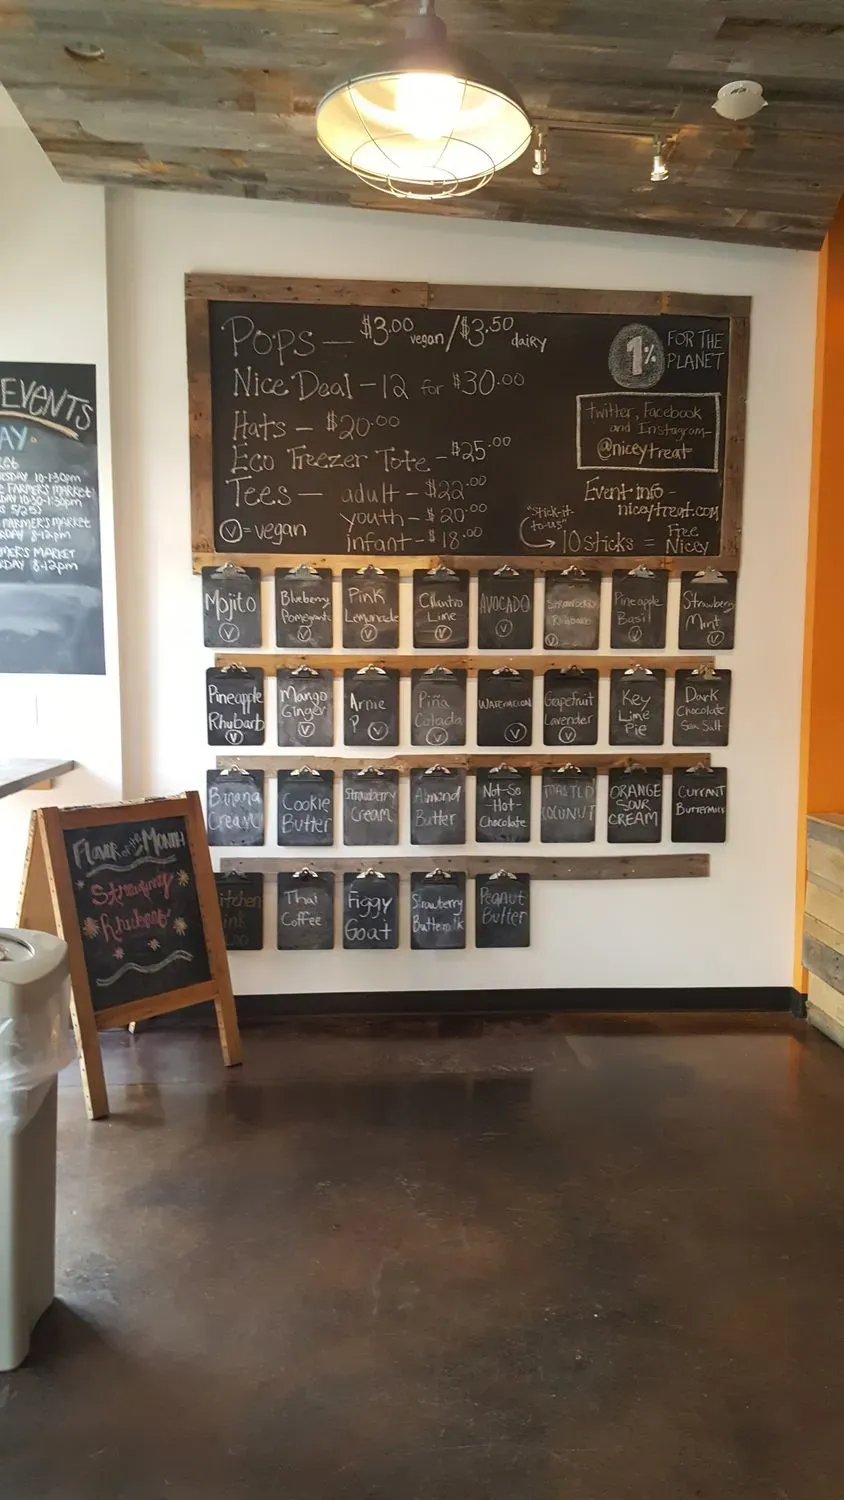 Pops — $3.00 vegan / $3.50 dairy
Nice Deal - 12 for $30.00
Hats - $20.00
Eco Freezer Tote - $25.00
Tees — adult - $22.00
youth - $20.00
infant - $18.00
V = vegan
1% FOR THE PLANET
Twitter, Facebook
and Instagram -
@niceytreat
Event info -
niceytreat.com
"Stick-it
to-us"
10 sticks = Free Nicey
EVENTS
10-1:30pm
FARMER'S MARKET
10:30-1:30pm
FARMER'S MARKET
8-12pm
FARMER'S MARKET
8-12pm
Mojito
V
Blueberry
Pomegranate
V
Pink
Lemonade
V
Cilantro
Lime
V
AVOCADO
V
Strawberry
Rhubarb
V
Pineapple
Basil
V
Strawberry
Mint
V
Pineapple
Rhubarb
V
Mango
Ginger
V
Arnie
P V
Piña
Colada
V
WATERMELON
V
Grapefruit
Lavender
V
Key
Lime
Pie
Dark
Chocolate
Sea Salt
Banana
Cream
Cookie
Butter
Strawberry
Cream
Almond
Butter
Not-So
-Hot-
Chocolate
TOASTED
COCONUT
ORANGE
SOUR
CREAM
CURRANT
BUTTERMILK
Thai
Coffee
Figgy
Goat
Strawberry
Buttermilk
Peanut
Butter
Flavor of the Month
Strawberry
Rhubarb